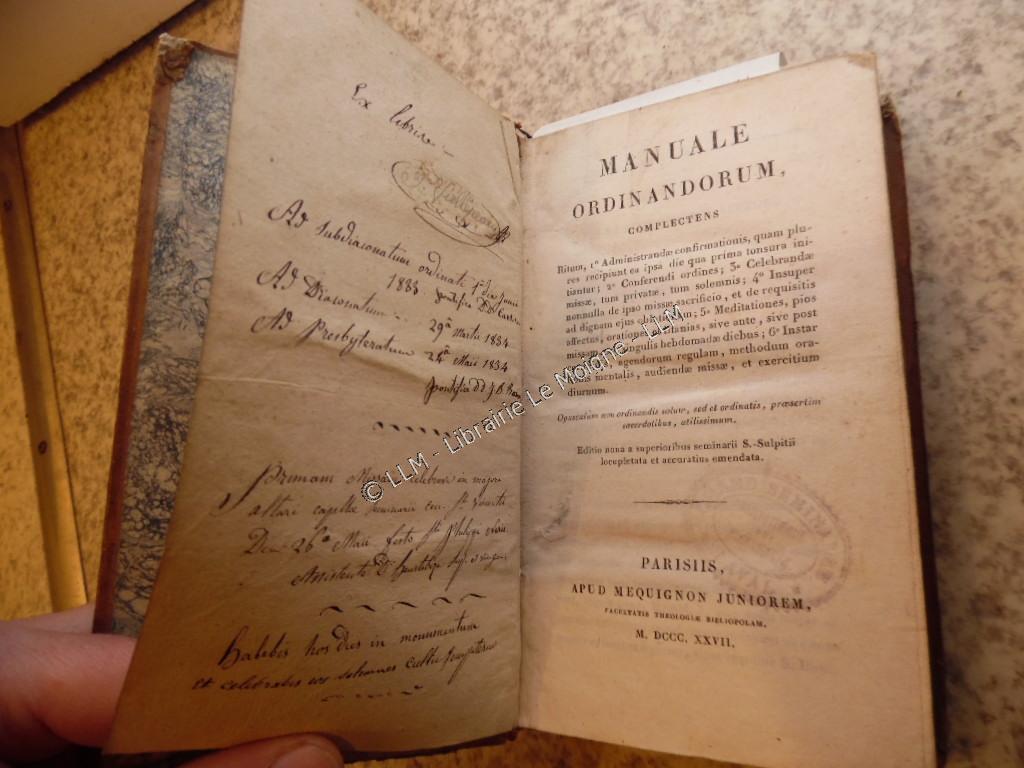 Ex libris
Ad Subdiaconatum ordinati
1833 pontifice
Ad Diaconatum 29â Martii 1834
Ad Presbyteratum 24â Maii 1834
pontifice
Primam Missam celebravi in majori
altari capellæ seminarii
Die 26â Maii festo Sti Philippi
Assistente D.
habebis hos dies in monumentum
et celebrabis eos solemnes cultu sempiterno
MANUALE
ORDINANDORUM,
COMPLECTENS
Ritum, 1º Administrandæ confirmationis, quam plu-
res recipiunt ea ipsa die qua prima tonsura ini-
tiantur; 2º Conferendi ordines; 3º Celebrandæ
missæ, tum privatæ, tum solemnis; 4º Insuper
nonnulla de ipso missæ sacrificio, et de requisitis
ad dignam ejus; 5º Meditationes, pios
affectus, orationes, litanias, sive ante, sive post
missam, singulis hebdomadæ diebus; 6º Instar
agendorum regulam, methodum ora-
tionis mentalis, audiendæ missæ, et exercitium
diurnum.
Opusculum non ordinandis solum, sed et ordinatis, præsertim
sacerdotibus, utilissimum.
Editio nona a superioribus seminarii S.-Sulpitii
locupletata et accuratius emendata.
PARISIIS,
APUD MEQUIGNON JUNIOREM,
FACULTATIS THEOLOGIÆ BIBLIOPOLAM,
M. DCCC. XXVII.
© LLM - Librairie Le Moigne - LLM